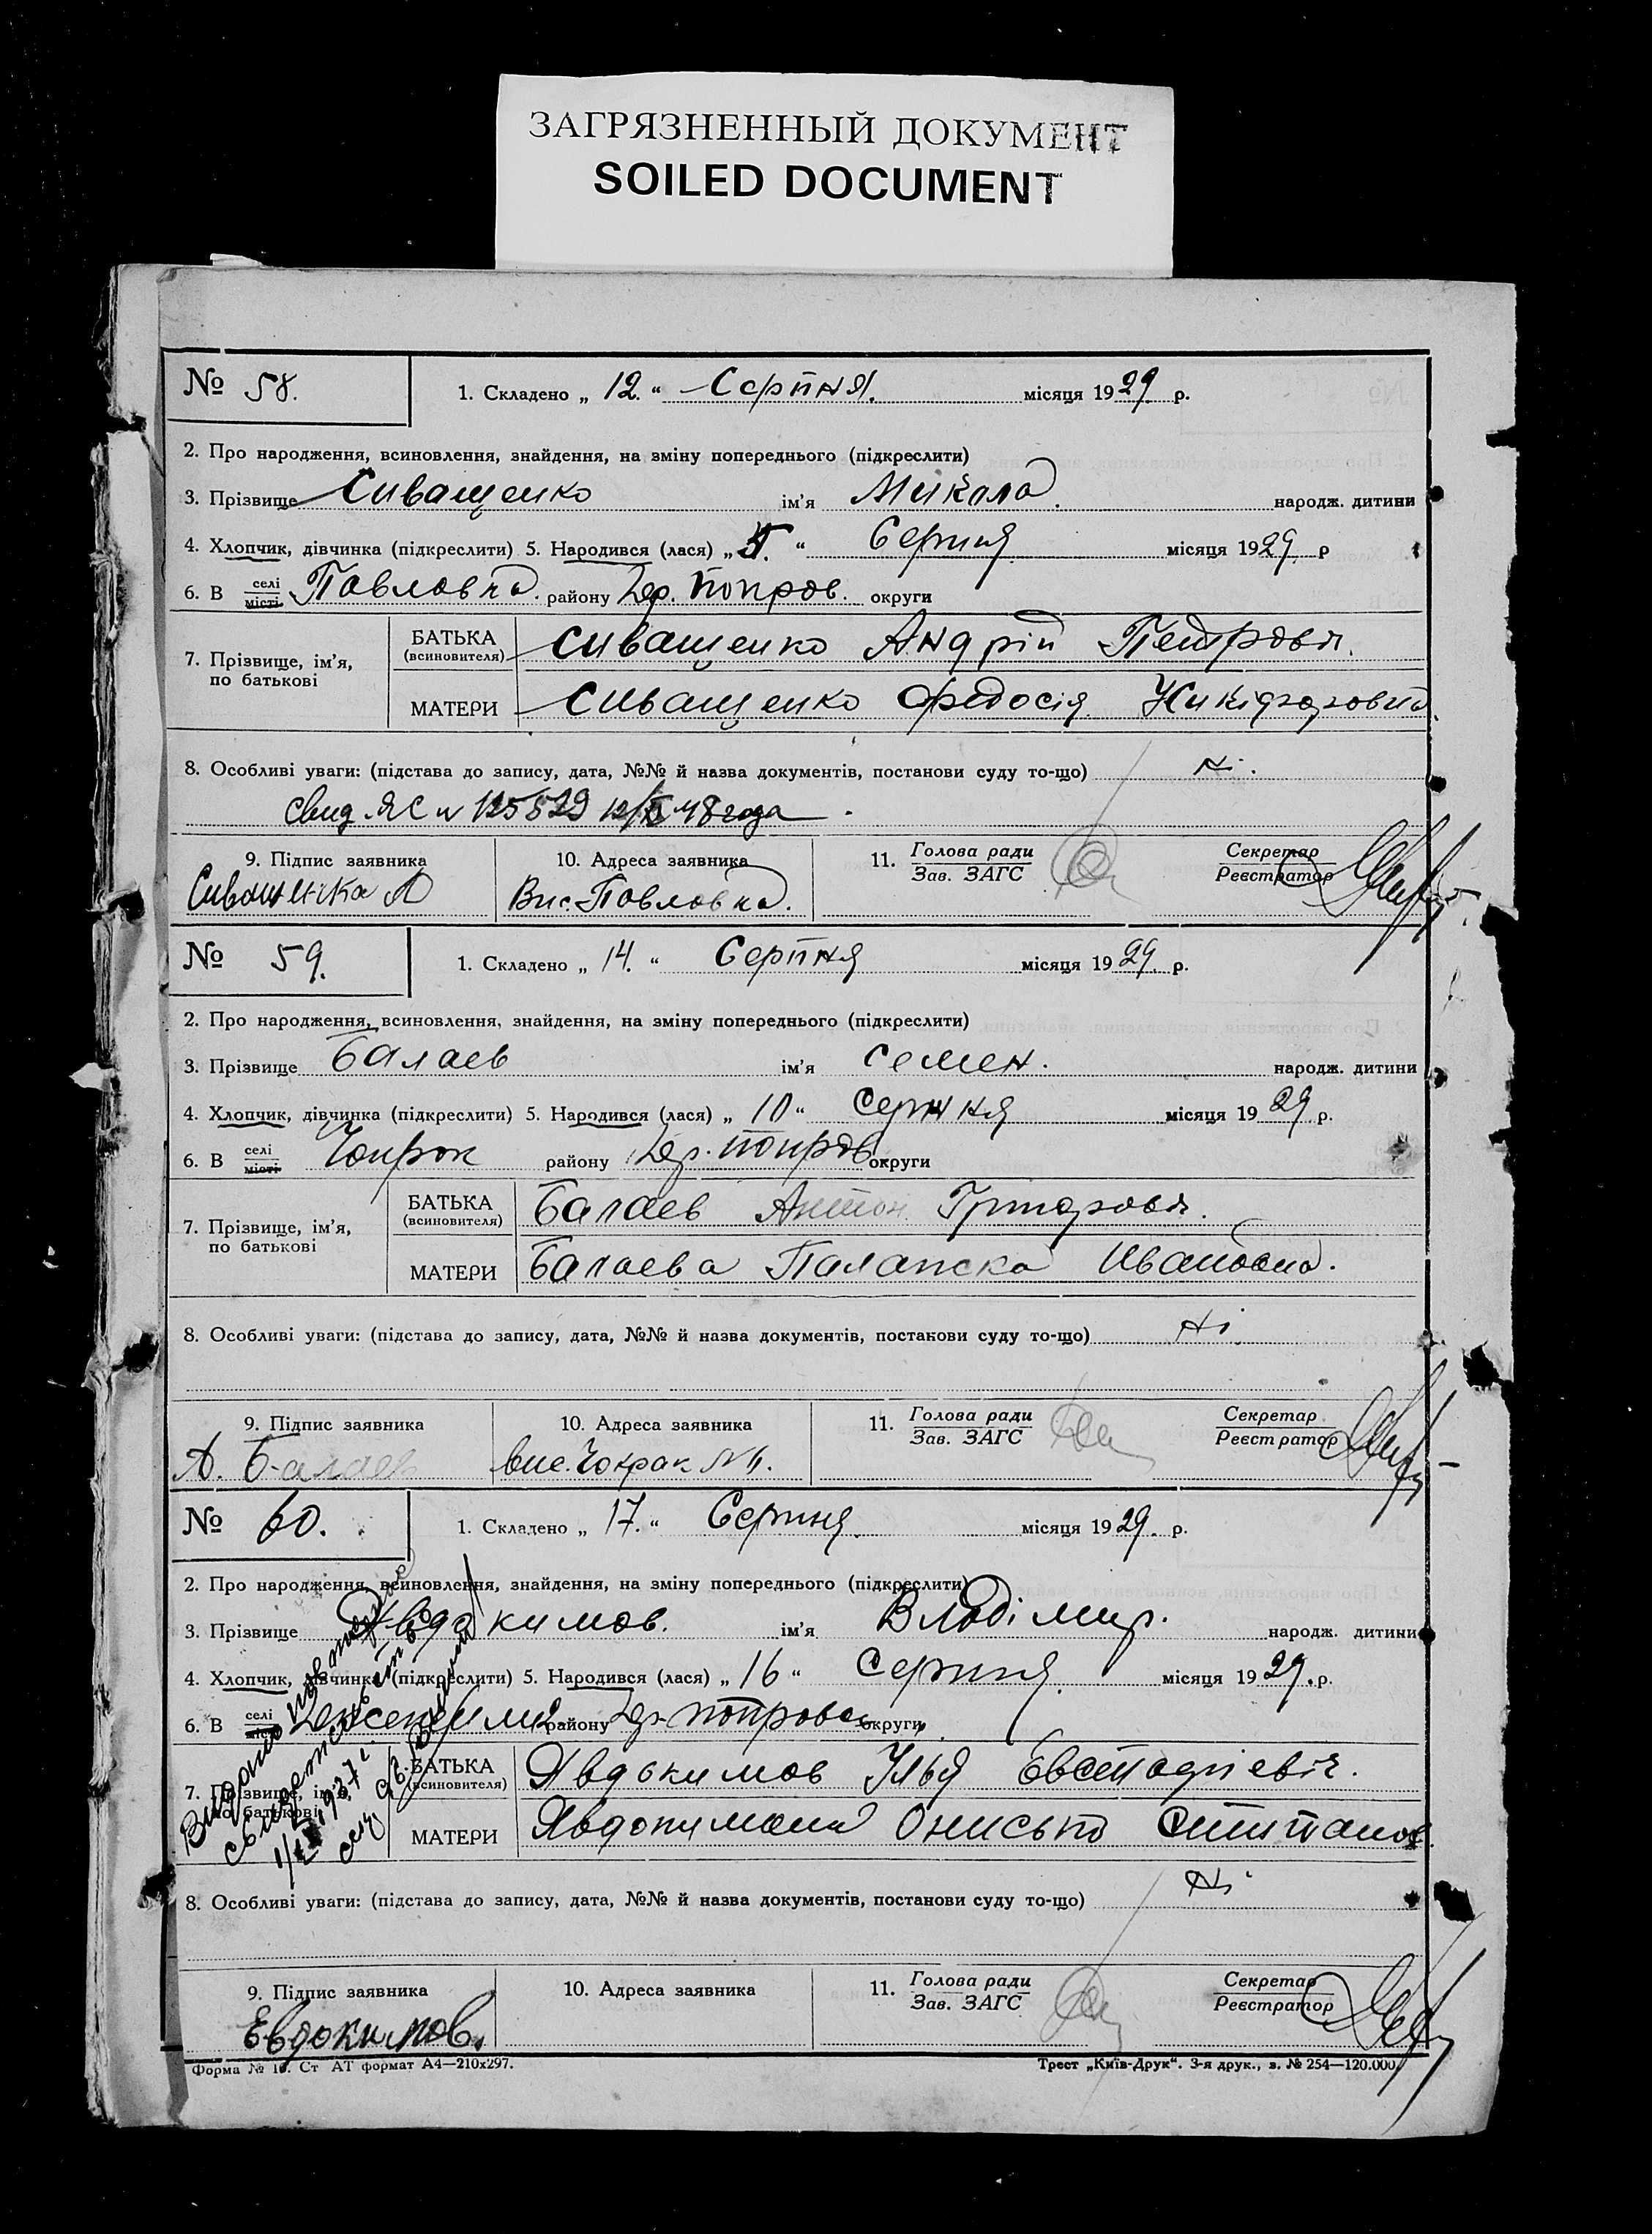 ЗАГРЯЗНЕННЫЙ ДОКУМЕНТ
SOILED DOCUMENT
№ 58. 1. Складено „ 12. “ Серпня. місяця 1929 р.
2. Про народження, всиновлення, знайдення, на зміну попереднього (підкреслити)
3. Прізвище Сиващенко ім'я Микола. народж. дитини
4. Хлопчик, дівчинка (підкреслити) 5. Народився (лася) „ 5. “ Серпня місяця 1929 р
6. В селі місті Павловка. району округи
7. Прізвище, ім'я, по батькові
БАТЬКА (всиновителя) Сиващенко Андрій Петровіч.
МАТЕРИ Сиващенко Федосія Никіфоровна
8. Особливі уваги: (підстава до запису, дата, №№ й назва документів, постанови суду то-що) Ні.
Свид. ЯС № 125529 48 года
9. Підпис заявника 10. Адреса заявника 11. Голова ради Зав. ЗАГС Секретар Реєстратор
Вис. Павловка.
№ 59. 1. Складено „ 14. “ Серпня місяця 1929. р.
2. Про народження, всиновлення, знайдення, на зміну попереднього (підкреслити)
3. Прізвище Балаев ім'я Семен. народж. дитини
4. Хлопчик, дівчинка (підкреслити) 5. Народився (лася) „ 10 “ Серпня місяця 1929 р.
6. В селі місті Чокрок району округи
7. Прізвище, ім'я, по батькові
БАТЬКА (всиновителя) Балаев Антон Григоровіч.
МАТЕРИ Балаева Палажка Ивановна.
8. Особливі уваги: (підстава до запису, дата, №№ й назва документів, постанови суду то-що) Ні
9. Підпис заявника 10. Адреса заявника 11. Голова ради Зав. ЗАГС Секретар Реєстратор
А. Балаев Вис. Чокрак
№ 60. 1. Складено „ 17. “ Серпня. місяця 1929. р.
2. Про народження, всиновлення, знайдення, на зміну попереднього (підкреслити)
3. Прізвище Явдокимов. ім'я Владімир. народж. дитини
4. Хлопчик, дівчинка (підкреслити) 5. Народився (лася) „ 16 “ Серпня. місяця 1929. р.
6. В селі району округи
7. Прізвище, ім'я, по батькові
БАТЬКА (всиновителя) Явдокимов Улья Евстафіевіч.
МАТЕРИ Явдокимова Онисько
8. Особливі уваги: (підстава до запису, дата, №№ й назва документів, постанови суду то-що) Ні
9. Підпис заявника 10. Адреса заявника 11. Голова ради Зав. ЗАГС Секретар Реєстратор
Евдокимов.
Форма № 10. Ст АТ формат А4—210х297. Трест „Київ-Друк“. 3-я друк., з. № 254—120.000